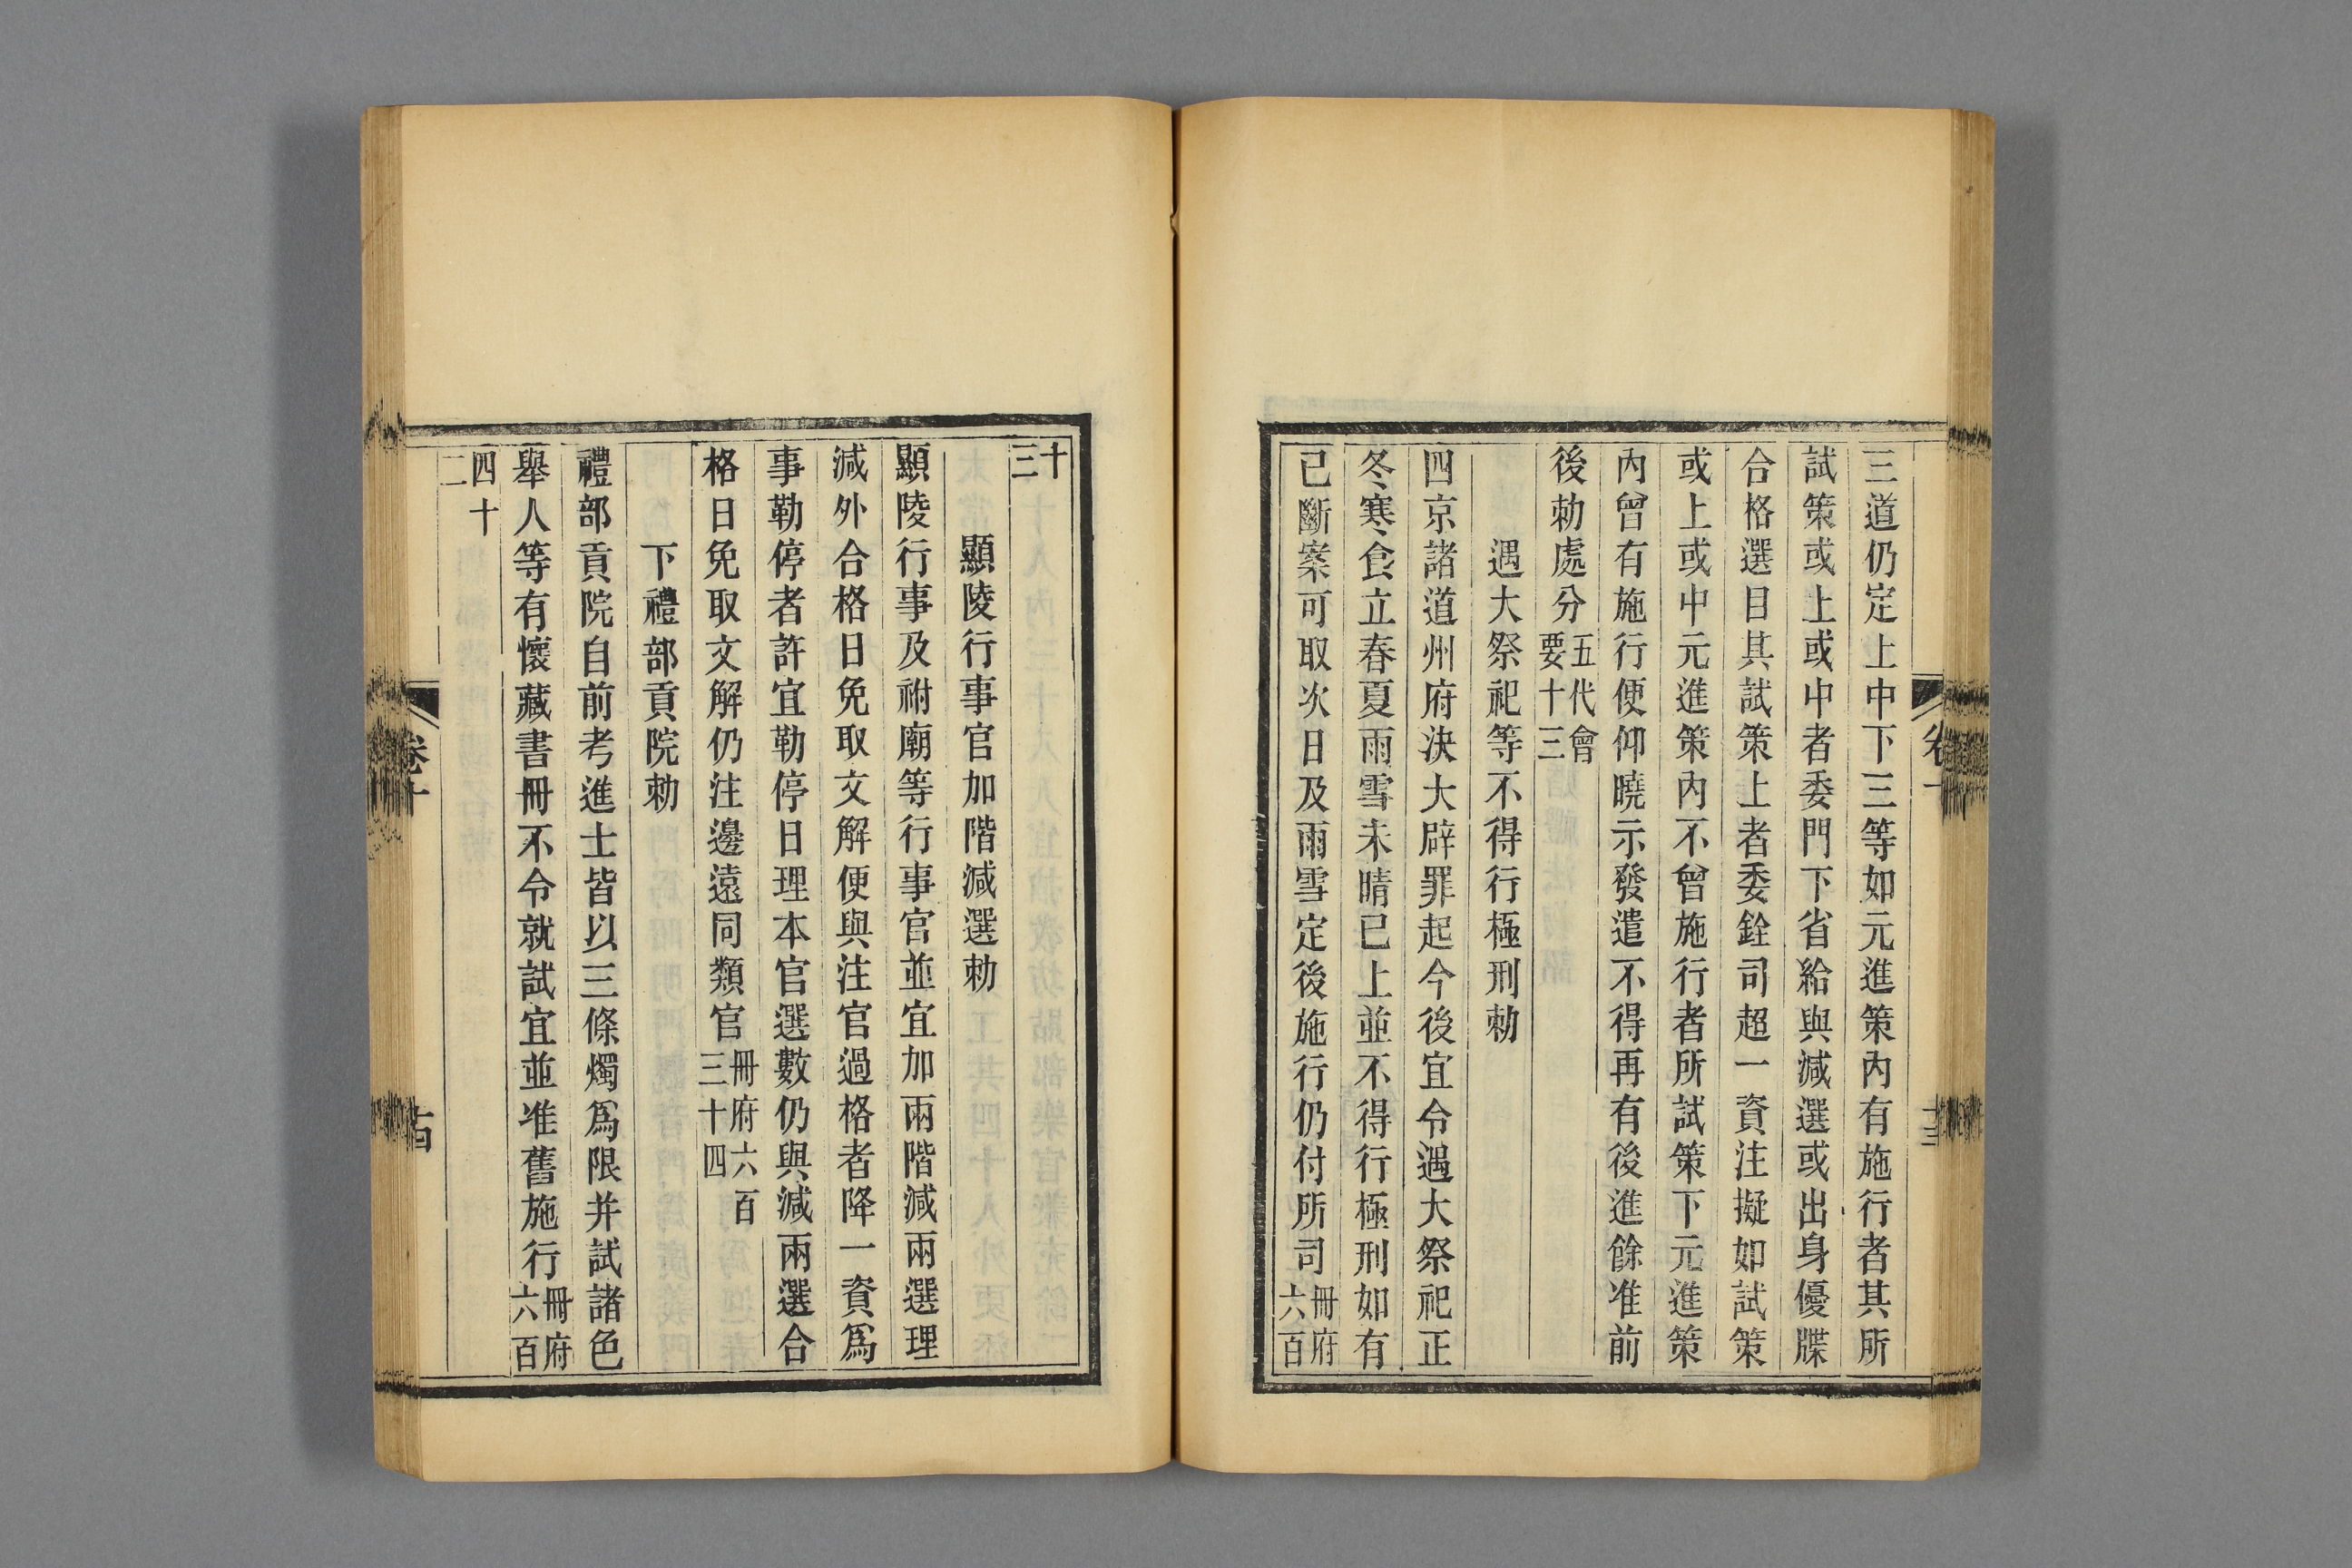 三道仍定上中下三等如元進策內有施行者其所
試策或上或中者委門下省給與減選或出身優牒
合格選日其試策上者委銓司超一資注擬如試策
或上或中元進策內不曾施行者所試策下元進策
內曾有施行便仰曉示發遣不得再有後進餘准前
後勅處分五代會要十三
遇大祭祀等不得行極刑勅
四京諸道州府決大辟罪起今後宜令遇大祭祀正
冬寒食立春夏雨雪未晴已上並不得行極刑如有
已斷案可取次日及雨雪定後施行仍付所司冊府六百
十三
顯陵行事官加階減選勅
顯陵行事及祔廟等行事官並宜加兩階減兩選理
減外合格日免取文解便與注官過格者降一資爲
事勒停者許宜勒停日理本官選數仍與減兩選合
格日免取文解仍注邊遠同類官冊府六百三十四
下禮部貢院勅
禮部貢院自前考進士皆以三條燭爲限并試諸色
舉人等有懷藏書冊不令就試宜並准舊施行冊府六百
四十二
卷十
十四